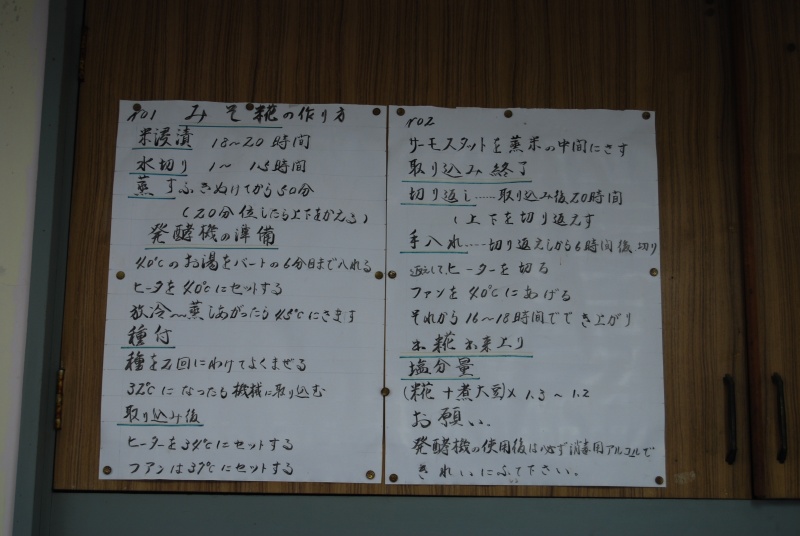 NO1 みそ糀の作り方
米浸漬 18~20時間
水切り 1~1.5時間
蒸す ふきぬけてから50分
(20分位したら上下をかえる)
発酵機の準備
40℃のお湯をバートの6分目まで入れる
ヒータを40℃にセットする
放冷~蒸しあがったら45℃にさます
種付
種を2回にわけてよくまぜる
32℃になったら機械に取り込む
取り込み後
ヒーターを34℃にセットする
ファンは37℃にセットする
NO2
サーモスタットを蒸米の中間にさす
取り込み終了
切り返し……取り込み後20時間
(上下を切り返えす
手入れ……切り返えしから6時間後切り
返えしてヒーターを切る
ファンを40℃にあげる
それから16~18時間でき上がり
糀出来上り
塩分量
(糀+煮大豆)× 1.3~1.2
お願い.
発酵機の使用後は必ず消毒用アルコルで
きれいにふて下さい。